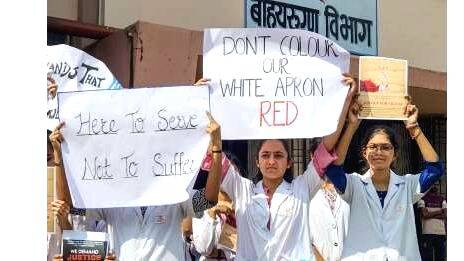 बाह्यरुग्ण विभाग
ANDS THAT
Here To Serve
Not To Suffer
DON'T COLOUR
OUR
WHITE APRON
RED
WE DEMAND
JUSTICE